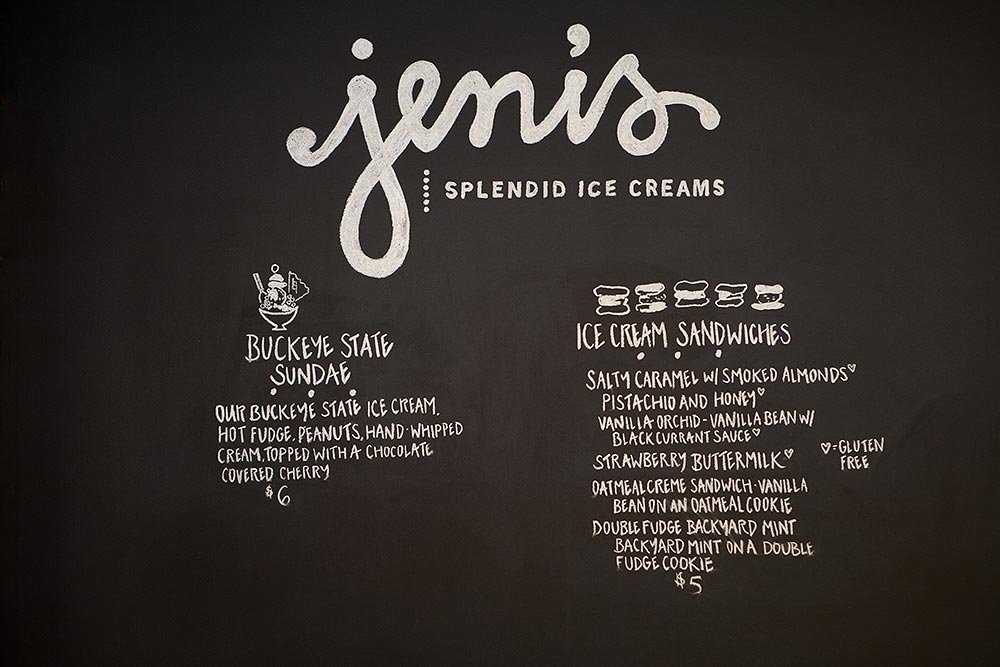 jeni's
SPLENDID ICE CREAMS
BUCKEYE STATE
SUNDAE
OUR BUCKEYE STATE ICE CREAM,
HOT FUDGE, PEANUTS, HAND-WHIPPED
CREAM, TOPPED WITH A CHOCOLATE
COVERED CHERRY
$6
ICE CREAM SANDWICHES
SALTY CARAMEL W/ SMOKED ALMONDS♡
PISTACHIO AND HONEY♡
VANILLA ORCHID-VANILLA BEAN W/
BLACK CURRANT SAUCE♡
STRAWBERRY BUTTERMILK♡
OATMEAL CREME SANDWICH-VANILLA
BEAN ON AN OATMEAL COOKIE
DOUBLE FUDGE BACKYARD MINT
BACKYARD MINT ON A DOUBLE
FUDGE COOKIE
$5
♡=GLUTEN
FREE